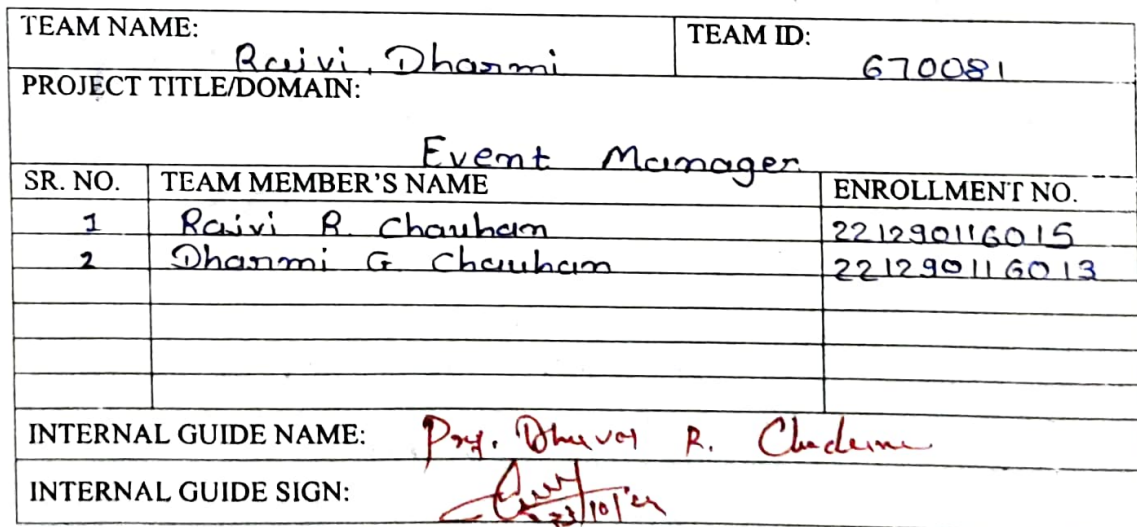 TEAM NAME: TEAM ID:
Raivi, Dharmi 670081
PROJECT TITLE/DOMAIN:
Event Manager
SR. NO. TEAM MEMBER'S NAME ENROLLMENT NO.
1 Raivi R. Chauhan 221290116015
2 Dharmi G Chauhan 221290116013
INTERNAL GUIDE NAME: Prof. Dhuval R.
INTERNAL GUIDE SIGN:
23/10/24